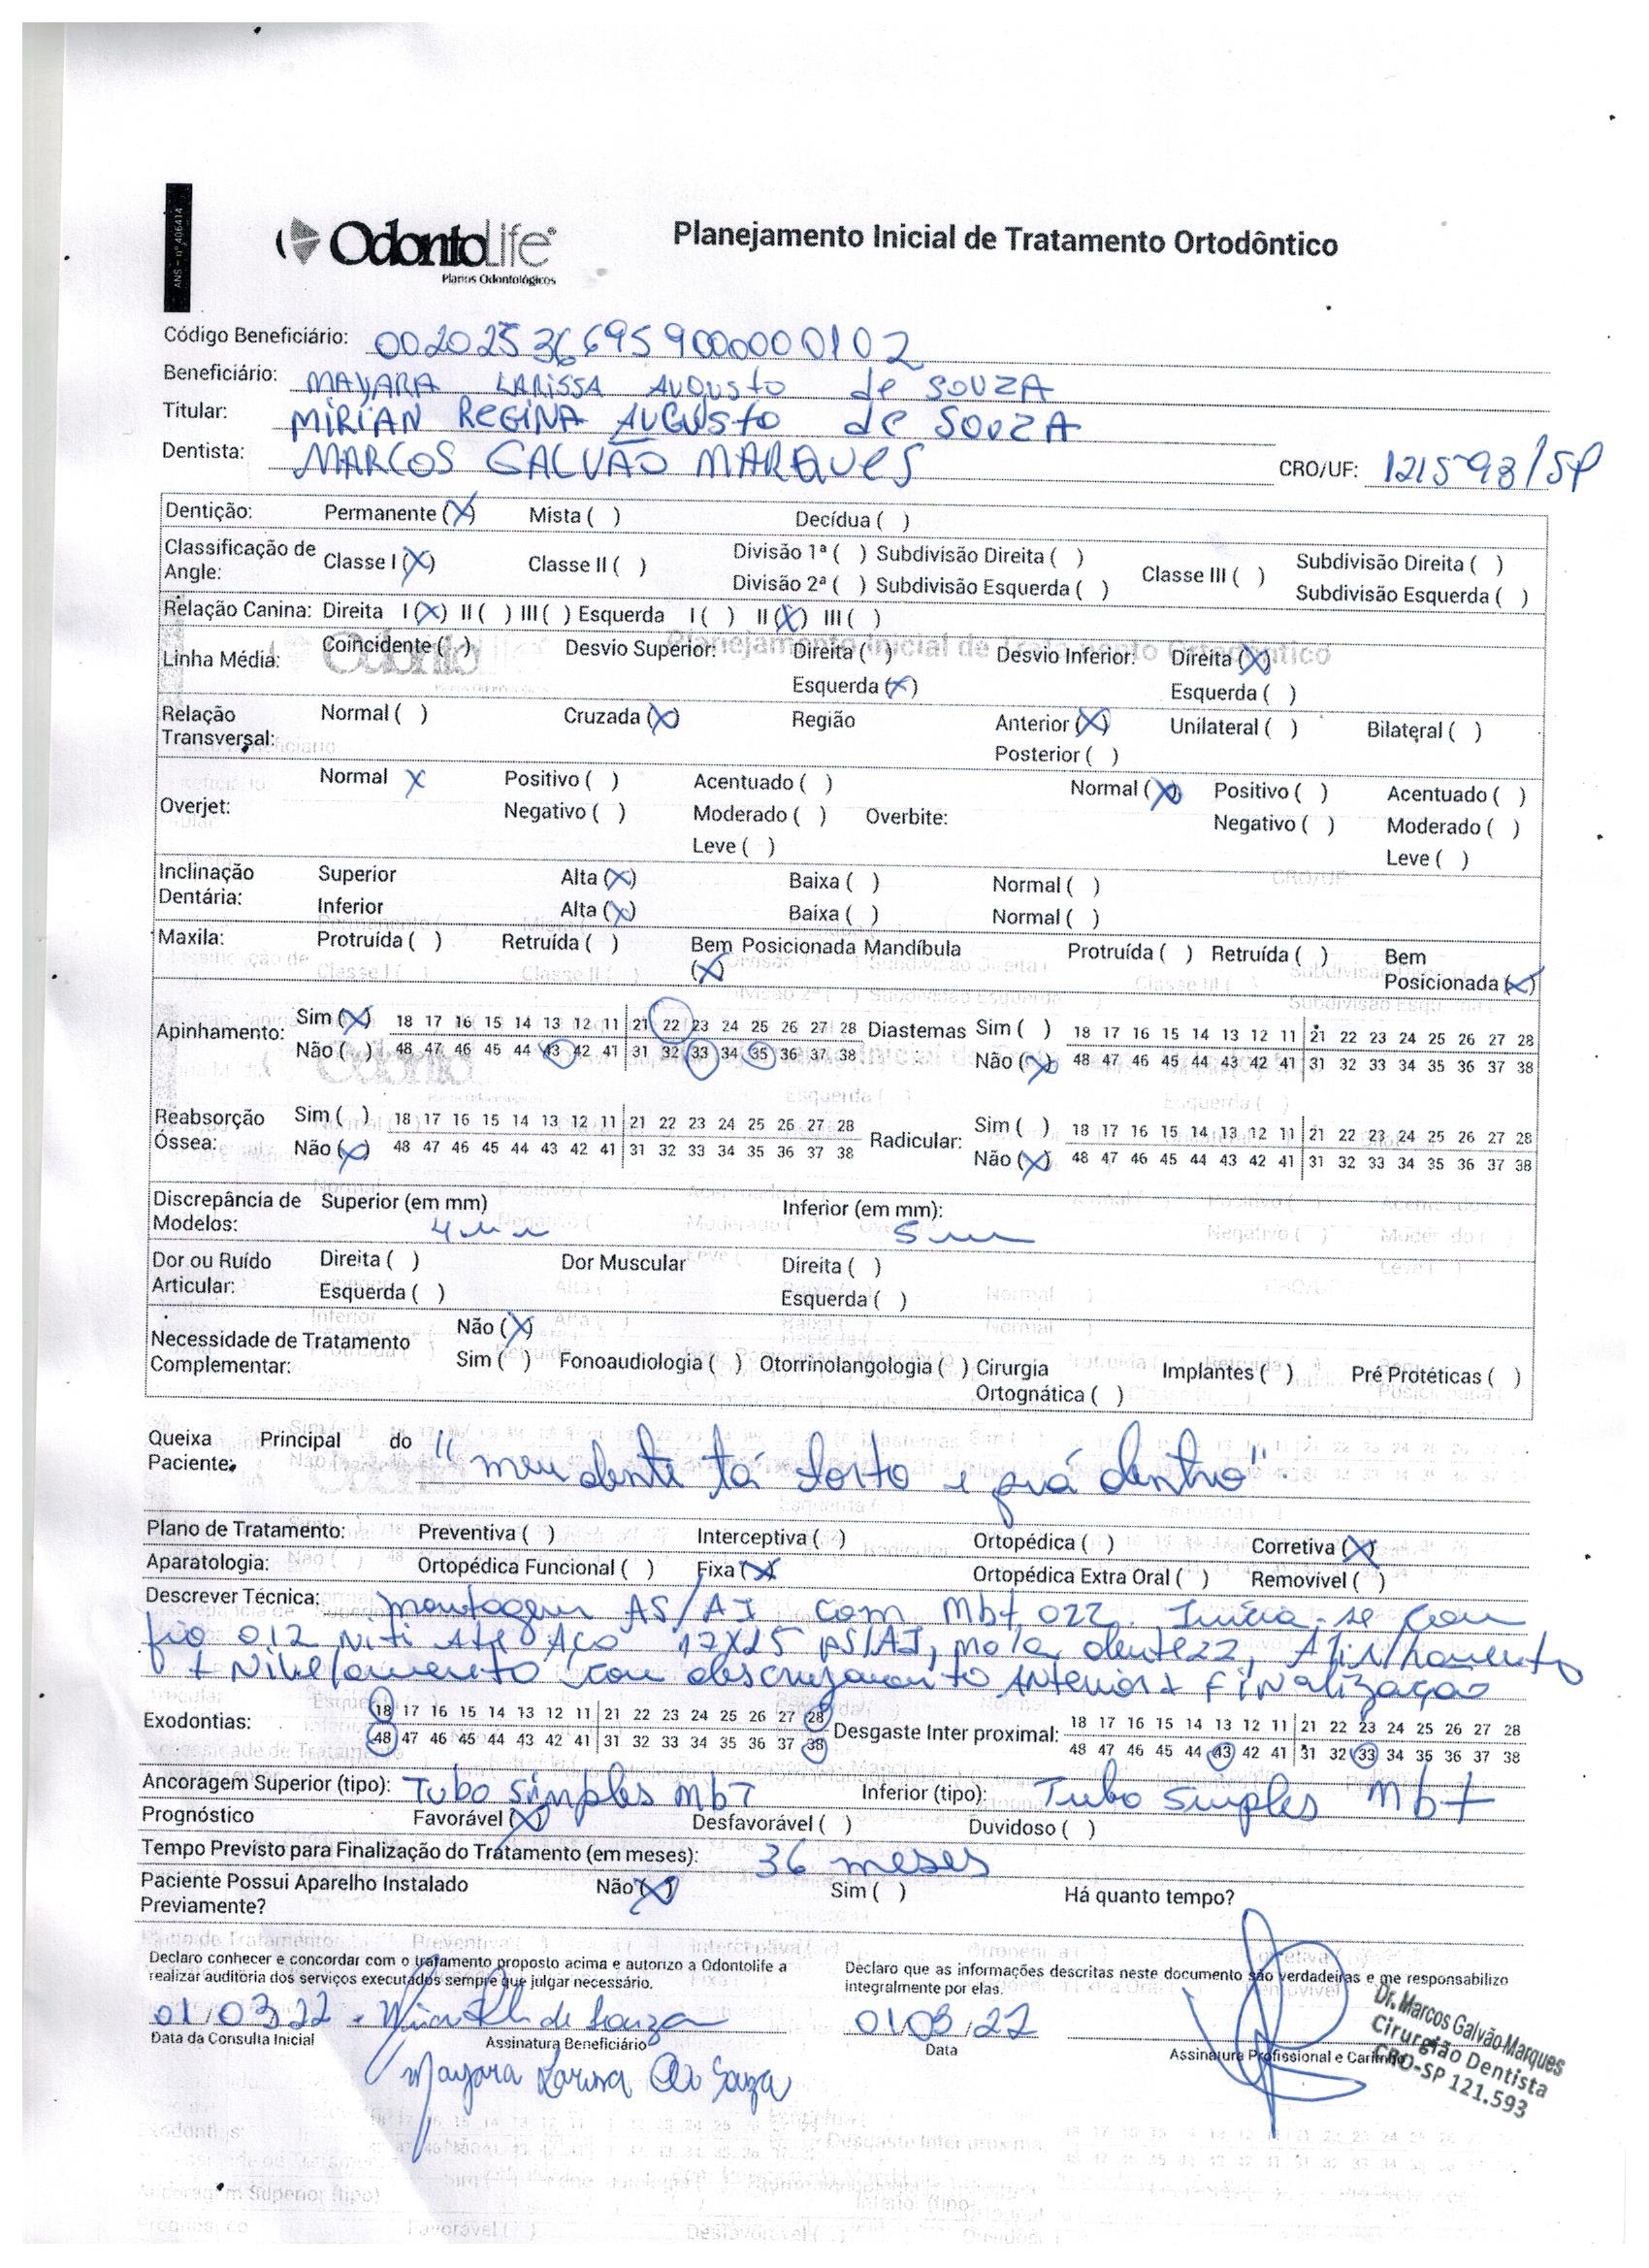 ANS - nº 406414
OdontoLife®
Planos Odontológicos
Planejamento Inicial de Tratamento Ortodôntico
Código Beneficiário: 002025366959000000102
Beneficiário: MAYARA LARISSA AUGUSTO de SOUZA
Titular: MIRIAN REGINA AUGUSTO de SOUZA
Dentista: MARCOS GALVÃO MARQUES CRO/UF: 121593/SP
Dentição: Permanente (X) Mista ( ) Decídua ( )
Classificação de Angle: Classe I (X) Classe II ( ) Divisão 1ª ( ) Subdivisão Direita ( ) Classe III ( ) Subdivisão Direita ( )
Divisão 2ª ( ) Subdivisão Esquerda ( ) Subdivisão Esquerda ( )
Relação Canina: Direita I (X) II ( ) III ( ) Esquerda I ( ) II (X) III ( )
Linha Média: Coincidente ( ) Desvio Superior: Direita ( ) Desvio Inferior: Direita (X)
Esquerda (X) Esquerda ( )
Relação Transversal: Normal ( ) Cruzada (X) Região Anterior (X) Unilateral ( ) Bilateral ( )
Posterior ( )
Overjet: Normal X Positivo ( ) Acentuado ( ) Overbite: Normal (X) Positivo ( ) Acentuado ( )
Negativo ( ) Moderado ( ) Negativo ( ) Moderado ( )
Leve ( ) Leve ( )
Inclinação Dentária: Superior Alta (X) Baixa ( ) Normal ( )
Inferior Alta (X) Baixa ( ) Normal ( )
Maxila: Protruída ( ) Retruída ( ) Bem Posicionada (X) Mandíbula Protruída ( ) Retruída ( ) Bem Posicionada (X)
Apinhamento: Sim (X) 18 17 16 15 14 13 12 11 21 22 23 24 25 26 27 28 Diastemas Sim ( ) 18 17 16 15 14 13 12 11 21 22 23 24 25 26 27 28
Não ( ) 48 47 46 45 44 43 42 41 31 32 33 34 35 36 37 38 Não (X) 48 47 46 45 44 43 42 41 31 32 33 34 35 36 37 38
Reabsorção Óssea: Sim ( ) 18 17 16 15 14 13 12 11 21 22 23 24 25 26 27 28 Radicular: Sim ( ) 18 17 16 15 14 13 12 11 21 22 23 24 25 26 27 28
Não (X) 48 47 46 45 44 43 42 41 31 32 33 34 35 36 37 38 Não (X) 48 47 46 45 44 43 42 41 31 32 33 34 35 36 37 38
Discrepância de Modelos: Superior (em mm) 4mm Inferior (em mm): 5mm
Dor ou Ruído Articular: Direita ( ) Dor Muscular Direita ( )
Esquerda ( ) Esquerda ( )
Necessidade de Tratamento Complementar: Não (X)
Sim ( ) Fonoaudiologia ( ) Otorrinolangologia ( ) Cirurgia Ortognática ( ) Implantes ( ) Pré Protéticas ( )
Queixa Principal do Paciente: "meu dente tá torto e prá dentro".
Plano de Tratamento: Preventiva ( ) Interceptiva ( ) Ortopédica ( ) Corretiva (X)
Aparatologia: Ortopédica Funcional ( ) Fixa (X) Ortopédica Extra Oral ( ) Removível ( )
Descrever Técnica: montagem AS/AI com Mbt 022. Inicia-se com
fio 012 Niti Até Aço 17X25 AS/AI, mola dente 22, Alinhamento
+ Nivelamento com descruzamento Anterior + Finalização
Exodontias: 18 17 16 15 14 13 12 11 21 22 23 24 25 26 27 28 Desgaste Inter proximal: 18 17 16 15 14 13 12 11 21 22 23 24 25 26 27 28
48 47 46 45 44 43 42 41 31 32 33 34 35 36 37 38 48 47 46 45 44 43 42 41 31 32 33 34 35 36 37 38
Ancoragem Superior (tipo): Tubo simples MbT Inferior (tipo): Tubo simples Mbt
Prognóstico Favorável (X) Desfavorável ( ) Duvidoso ( )
Tempo Previsto para Finalização do Tratamento (em meses): 36 meses
Paciente Possui Aparelho Instalado Previamente? Não (X) Sim ( ) Há quanto tempo?
Declaro conhecer e concordar com o tratamento proposto acima e autorizo a Odontolife a
realizar auditoria dos serviços executados sempre que julgar necessário.
Declaro que as informações descritas neste documento são verdadeiras e me responsabilizo
integralmente por elas.
01/03/22 de Souza 01/03/22
Data da Consulta Inicial Assinatura Beneficiário Data Assinatura Profissional e Carimbo
Mayara Larissa de Souza
Dr. Marcos Galvão Marques
Cirurgião Dentista
CRO-SP 121.593